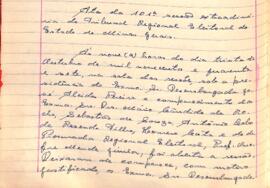 Ata da 101ª sessão extraordiná-
ria do Tribunal Regional Eleitoral do
Estado de Minas Gerais.
Às nove (9) horas do dia trinta de
outubro de mil novecentos e quarenta
e sete, na sala das sessões, sob a pre-
sidência do Exmo. Sr. Desembargador
Pereira e comparecimento dos
Exmos. Srs. Drs.
Sebastião de Souza, Antônio
de Rezende Filho, e do dr.
Procurador Regional Eleitoral, Prof.
foi aberta a sessão.
Deixaram de comparecer, com motivo
justificado, o Exmo. Sr. Desembargador